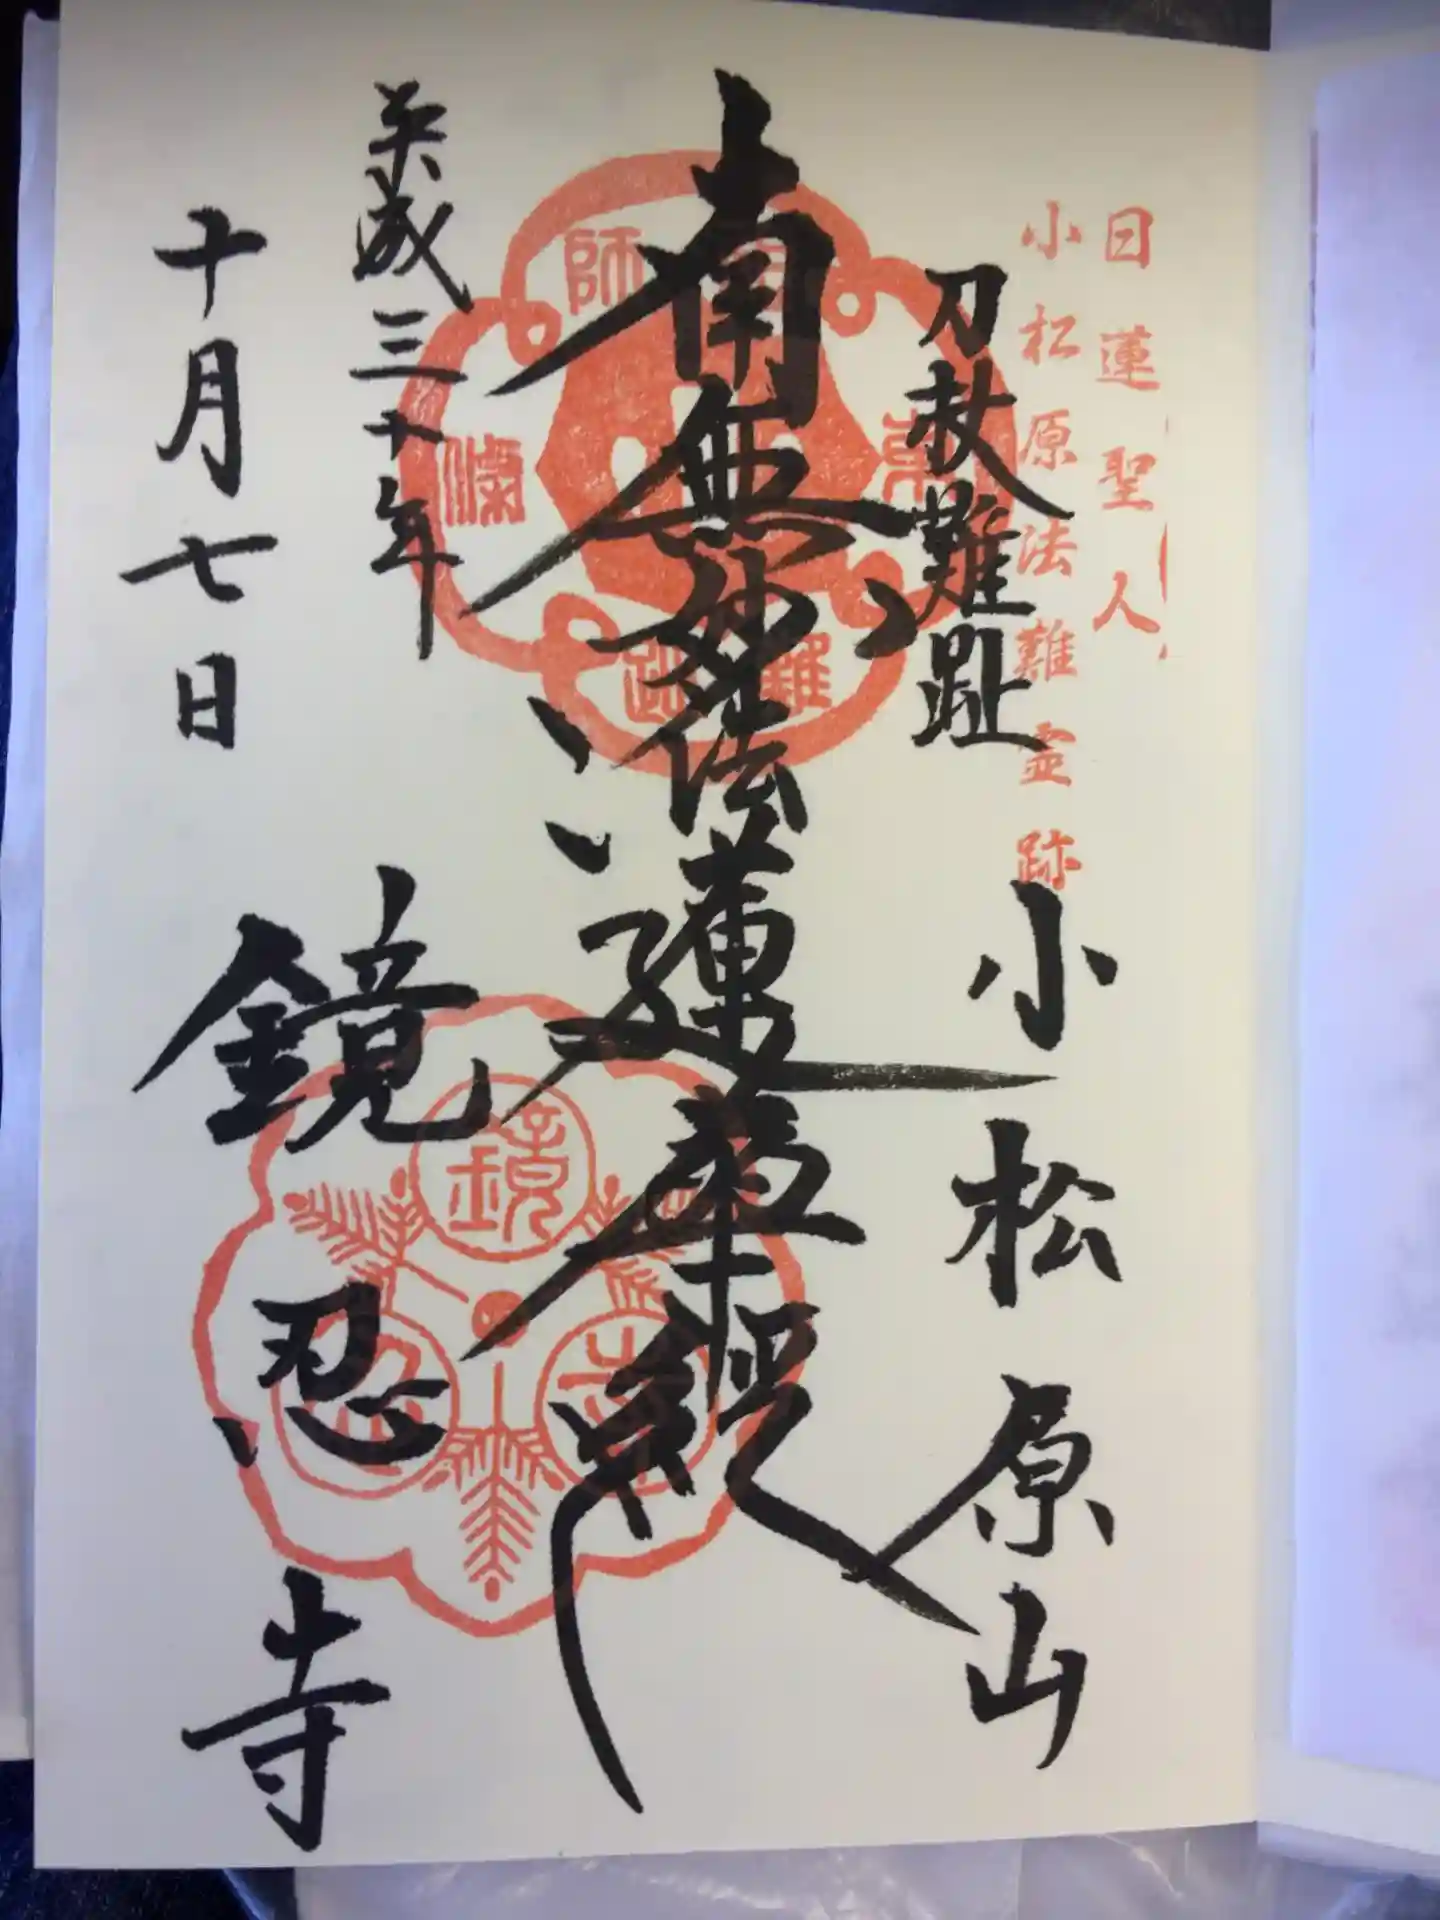 日蓮聖人
小松原法難霊跡
刀杖難趾
小松原山
南無妙法蓮華経
平成三十年
十月七日
鏡忍寺
師
難
跡
鏡
忍
寺